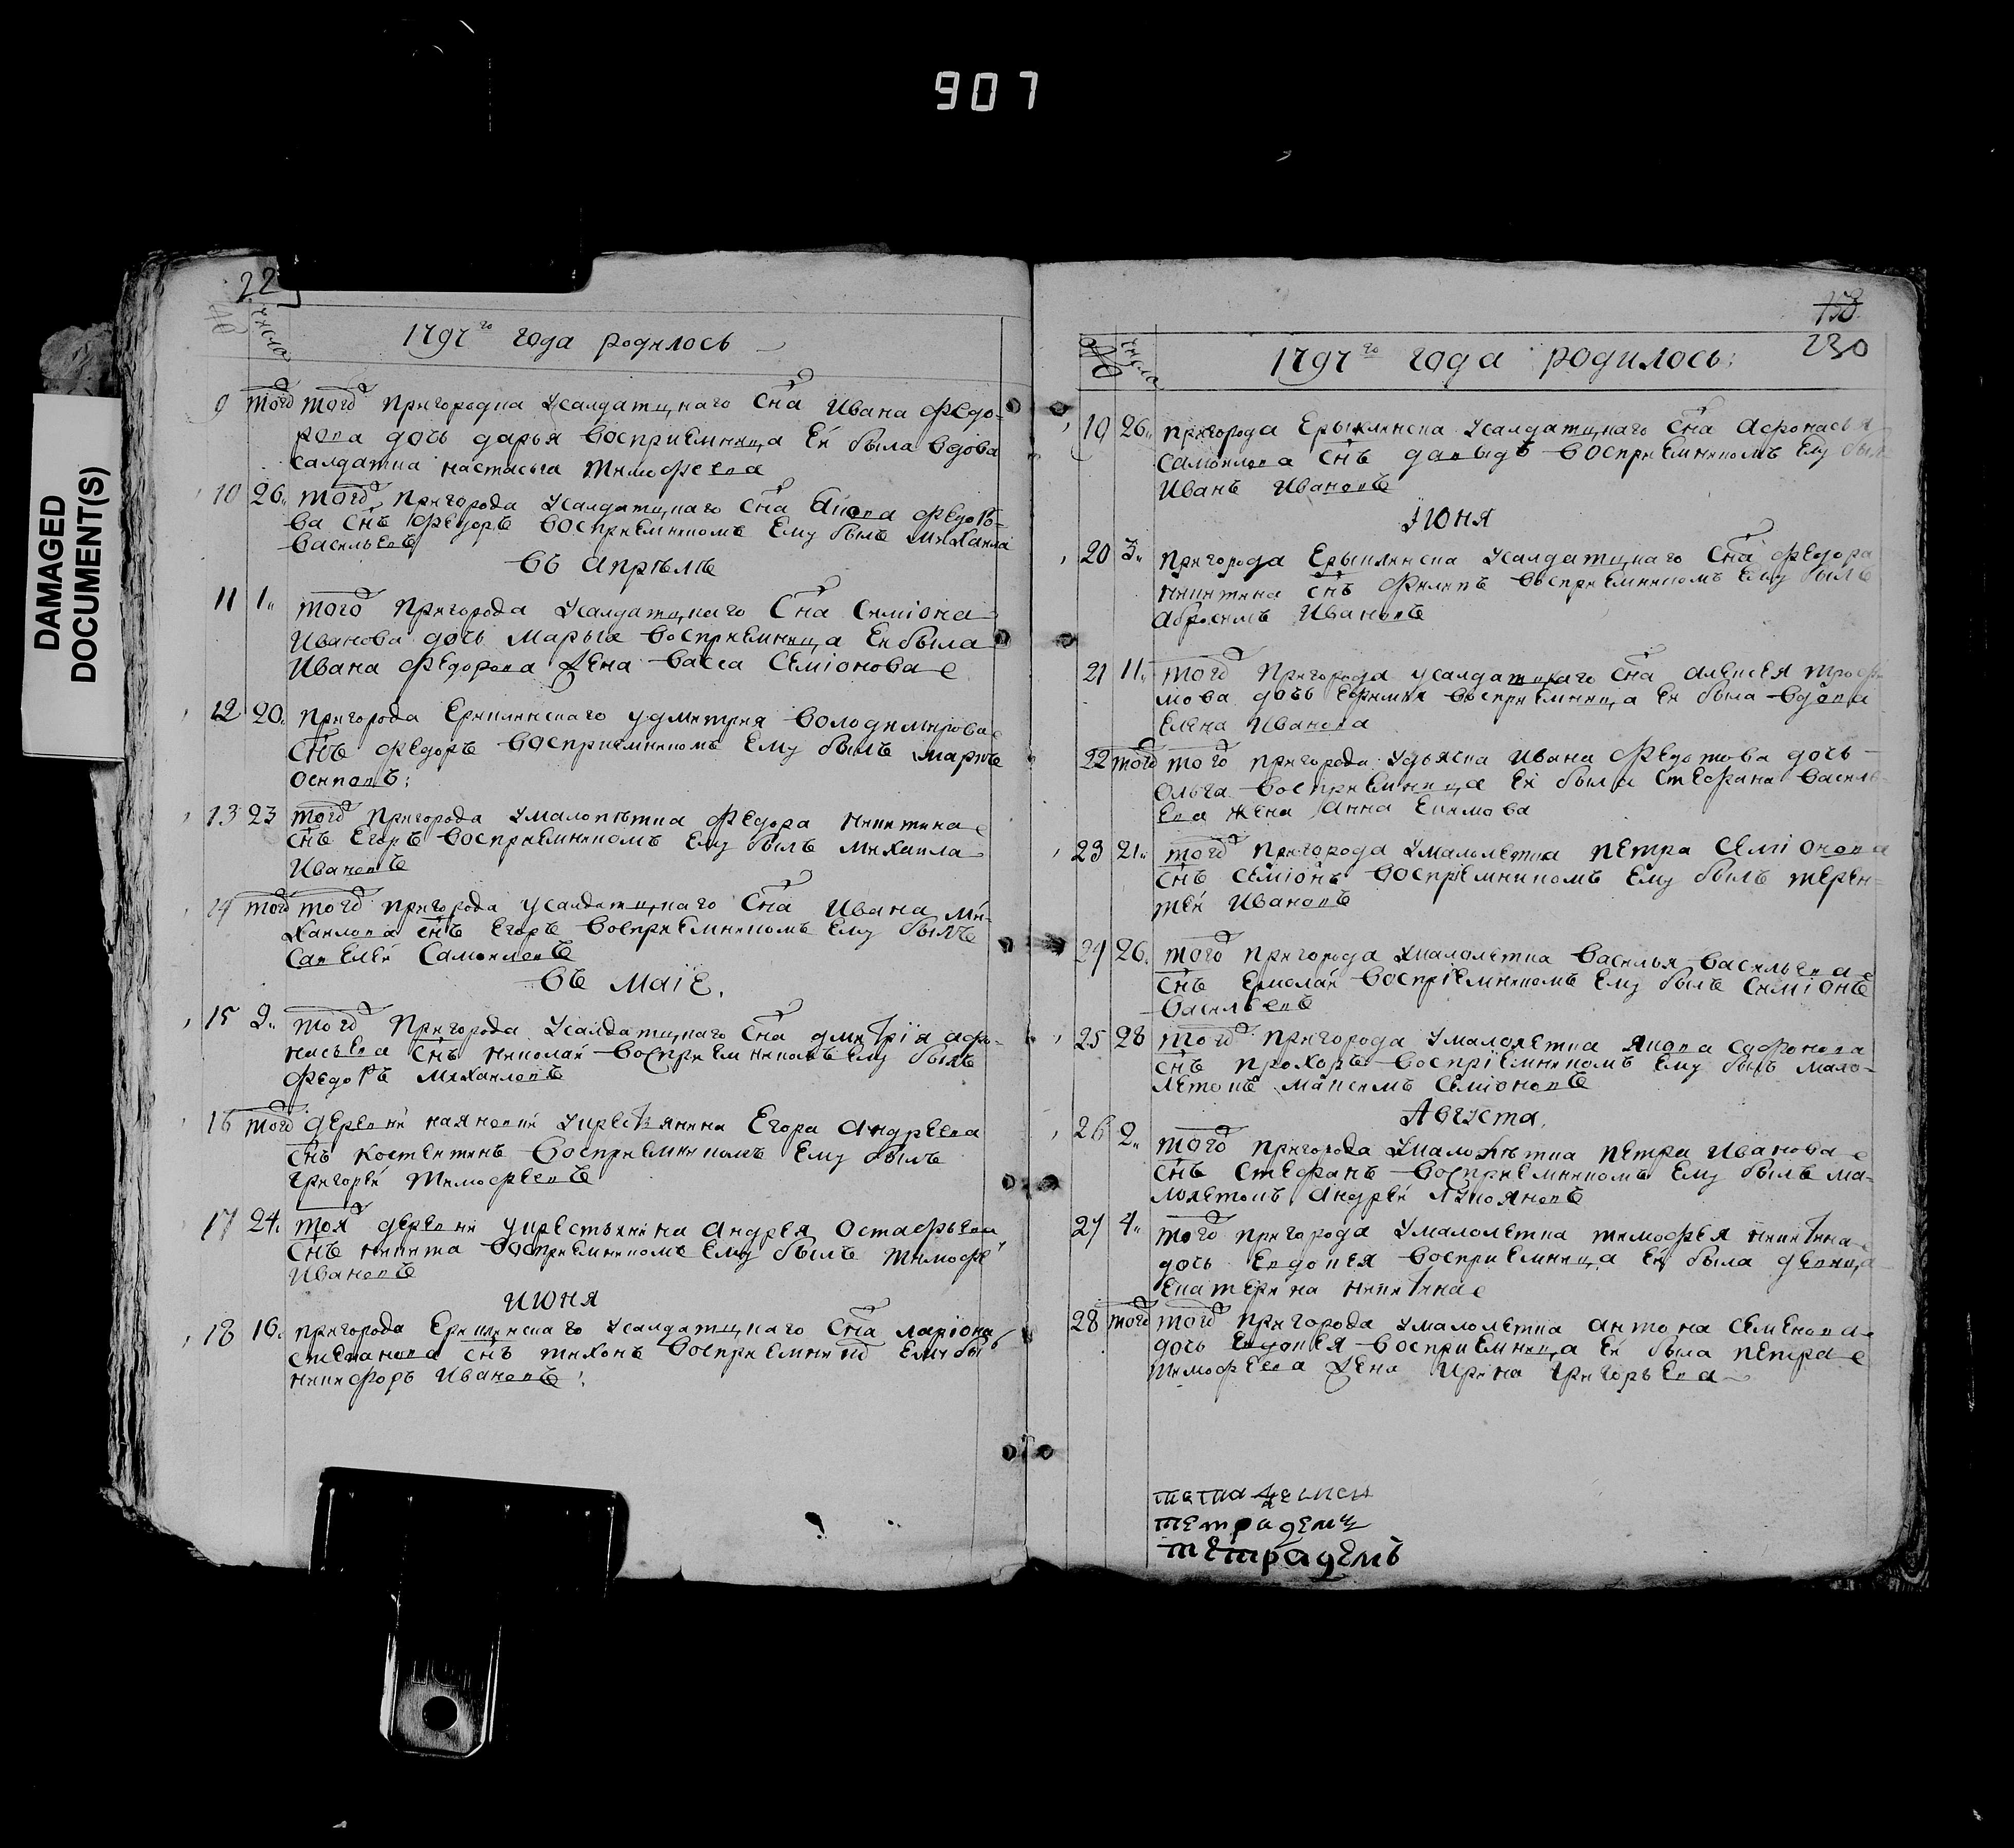 907
DAMAGED
DOCUMENT(S)
22
№ числа
1797го года родилось
9 того того пригородка Усалдатцкаго Сна Ивана Федо-
рова дочь дарья восприемница Ей была вдова
салдатка настасья Тимофеева
10 26. того пригорода Усалдатцкаго Сна Якова Федоро-
ва Снъ Федоръ восприемникомъ Ему былъ михаила
васильевъ
въ Апрѣлѣ
11 1. того пригорода Усалдатцкаго Сна Симіона
Иванова дочь Марья восприемница Ей была
Ивана Федорова жена васса Семіонова
12 20. пригорода Ериклинскаго удмитрея володимирова
Снъ Федоръ восприемникомъ Ему былъ марке
осиповъ:
13 23 того пригорода Умалолѣтка Федора никитина
Снъ Егоръ восприемникомъ Ему былъ михаила
Ивановъ
14 того того пригорода усалдатцкаго Сна Ивана Ми-
хаилова снъ Егоръ восприемникомъ Ему былъ
Савелей Самоиловъ
въ Маіе.
15 2. того пригорода Усалдатцкаго Сна дмитрія афа-
насьева Снъ николай восприемникомъ Ему былъ
Федоръ михаиловъ
16 того деревни каяновки Укрестьянина Егора Андреева
Снъ костентинъ восприемникомъ Ему былъ
григорей Тимофеевъ
17 24. тоя деревни укрестьянина Андрея Остафьева
Снъ никита восприемникомъ Ему былъ Тимофей
Ивановъ
июня
18 16. пригорода Ериклинскаго Усалдатцкаго Сна ларіона
степанова снъ тихонъ восприемникъ Ему бы
никифоръ Ивановъ:
158
230
№ числа
1797го года родилось:
19 26. пригорода Ерыклинска Усалдатцкаго Сна Афонасья
Самоилова Снъ давыдъ восприемникомъ Ему былъ
Иванъ Ивановъ
Июня
20 3. пригорода Ерыклинска Усалдатцкаго Сна Федора
никитина снъ Филипъ восприемникомъ Ему былъ
абросимъ Ивановъ
21 11. того пригорода усалдатцкаго Сна алексея трофи
мова дочь Ефимия восприемница Ей была вдова
Елена Иванова
22 того того пригорода Удьячка Ивана Федотова дочь
Ольга восприемница Ей была Стефана василь
Ева жена Анна Екимова
23 21. того пригорода Умалолетка петра Семіонова
снъ Семіонъ восприемникомъ Ему былъ терен-
тей Ивановъ
24 26. того пригорода Умалолетка василья васильева
Снъ Ермолай восприемникомъ Ему былъ Симіонъ
васильевъ
25 28 того пригорода Умалолетка якова Сафонова
снъ прохоръ восприемникомъ Ему былъ мало-
летокъ максимъ Семіоновъ
Августа.
26 2. того пригорода Умалолѣтка петра Иванова
снъ Стефанъ восприемникомъ Ему былъ ма-
лолетокъ андрей лукояновъ
27 4. того пригорода Умалолетка тимофея никитина
дочь Евдокея восприемница Ей была девица
Екатерина никитина
28 того того пригорода Умалолетка антона Семенова
дочь Евдокея восприемница Ей была петра
тимофеева жена Ирина григорьева
тетрадемъ
тетрадемъ